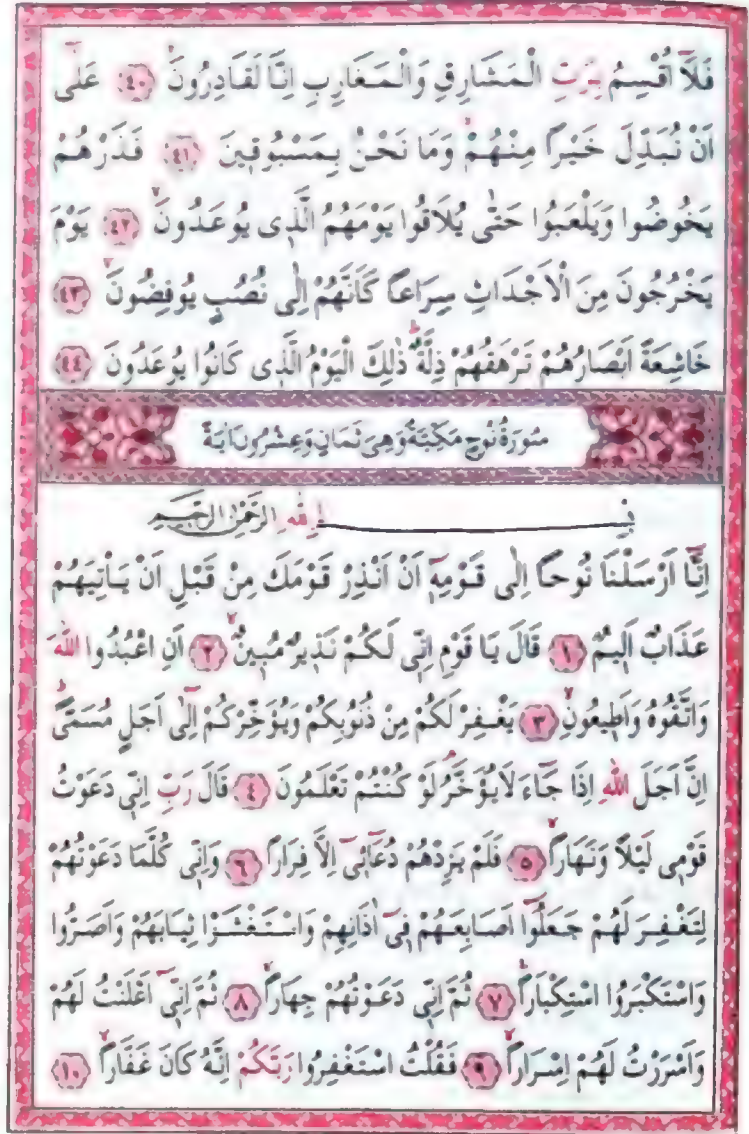 فَلَٓا اُقْسِمُ بِرَبِّ الْمَشَارِقِ وَالْمَغَارِبِ اِنَّا لَقَادِرُونَۙ ﴿٤٠﴾ عَلٰٓى
اَنْ نُبَدِّلَ خَيْرًا مِنْهُمْۙ وَمَا نَحْنُ بِمَسْبُوقٖينَ ﴿٤١﴾ فَذَرْهُمْ
يَخُوضُوا وَيَلْعَبُوا حَتّٰى يُلَاقُوا يَوْمَهُمُ الَّذٖى يُوعَدُونَۙ ﴿٤٢﴾ يَوْمَ
يَخْرُجُونَ مِنَ الْاَجْدَاثِ سِرَاعًا كَاَنَّهُمْ اِلٰى نُصُبٍ يُوفِضُونَۙ ﴿٤٣﴾
خَاشِعَةً اَبْصَارُهُمْ تَرْهَقُهُمْ ذِلَّةٌؕ ذٰلِكَ الْيَوْمُ الَّذٖى كَانُوا يُوعَدُونَ ﴿٤٤﴾
سُورَةُ نُوحٍ مَكِّيَّةٌ وَهِىَ ثَمَانٍ وَعِشْرُونَ اٰيَةً
بِسْمِ اللّٰهِ الرَّحْمٰنِ الرَّحٖيمِ
اِنَّٓا اَرْسَلْنَا نُوحًا اِلٰى قَوْمِهٖٓ اَنْ اَنْذِرْ قَوْمَكَ مِنْ قَبْلِ اَنْ يَاْتِيَهُمْ
عَذَابٌ اَلٖيمٌ ﴿١﴾ قَالَ يَا قَوْمِ اِنّٖى لَكُمْ نَذٖيرٌ مُبٖينٌۙ ﴿٢﴾ اَنِ اعْبُدُوا اللّٰهَ
وَاتَّقُوهُ وَاَطٖيعُونِۙ ﴿٣﴾ يَغْفِرْ لَكُمْ مِنْ ذُنُوبِكُمْ وَيُؤَخِّرْكُمْ اِلٰٓى اَجَلٍ مُسَمًّىؕ
اِنَّ اَجَلَ اللّٰهِ اِذَا جَٓاءَ لَا يُؤَخَّرُۢ لَوْ كُنْتُمْ تَعْلَمُونَ ﴿٤﴾ قَالَ رَبِّ اِنّٖى دَعَوْتُ
قَوْمٖى لَيْلًا وَنَهَارًاۙ ﴿٥﴾ فَلَمْ يَزِدْهُمْ دُعَٓائٖٓى اِلَّا فِرَارًا ﴿٦﴾ وَاِنّٖى كُلَّمَا دَعَوْتُهُمْ
لِتَغْفِرَ لَهُمْ جَعَلُٓوا اَصَابِعَهُمْ فٖٓى اٰذَانِهِمْ وَاسْتَغْشَوْا ثِيَابَهُمْ وَاَصَرُّوا
وَاسْتَكْبَرُوا اسْتِكْبَارًاۚ ﴿٧﴾ ثُمَّ اِنّٖى دَعَوْتُهُمْ جِهَارًاۙ ﴿٨﴾ ثُمَّ اِنّٖٓى اَعْلَنْتُ لَهُمْ
وَاَسْرَرْتُ لَهُمْ اِسْرَارًاۙ ﴿٩﴾ فَقُلْتُ اسْتَغْفِرُوا رَبَّكُمْ اِنَّهُ كَانَ غَفَّارًاۙ ﴿١٠﴾